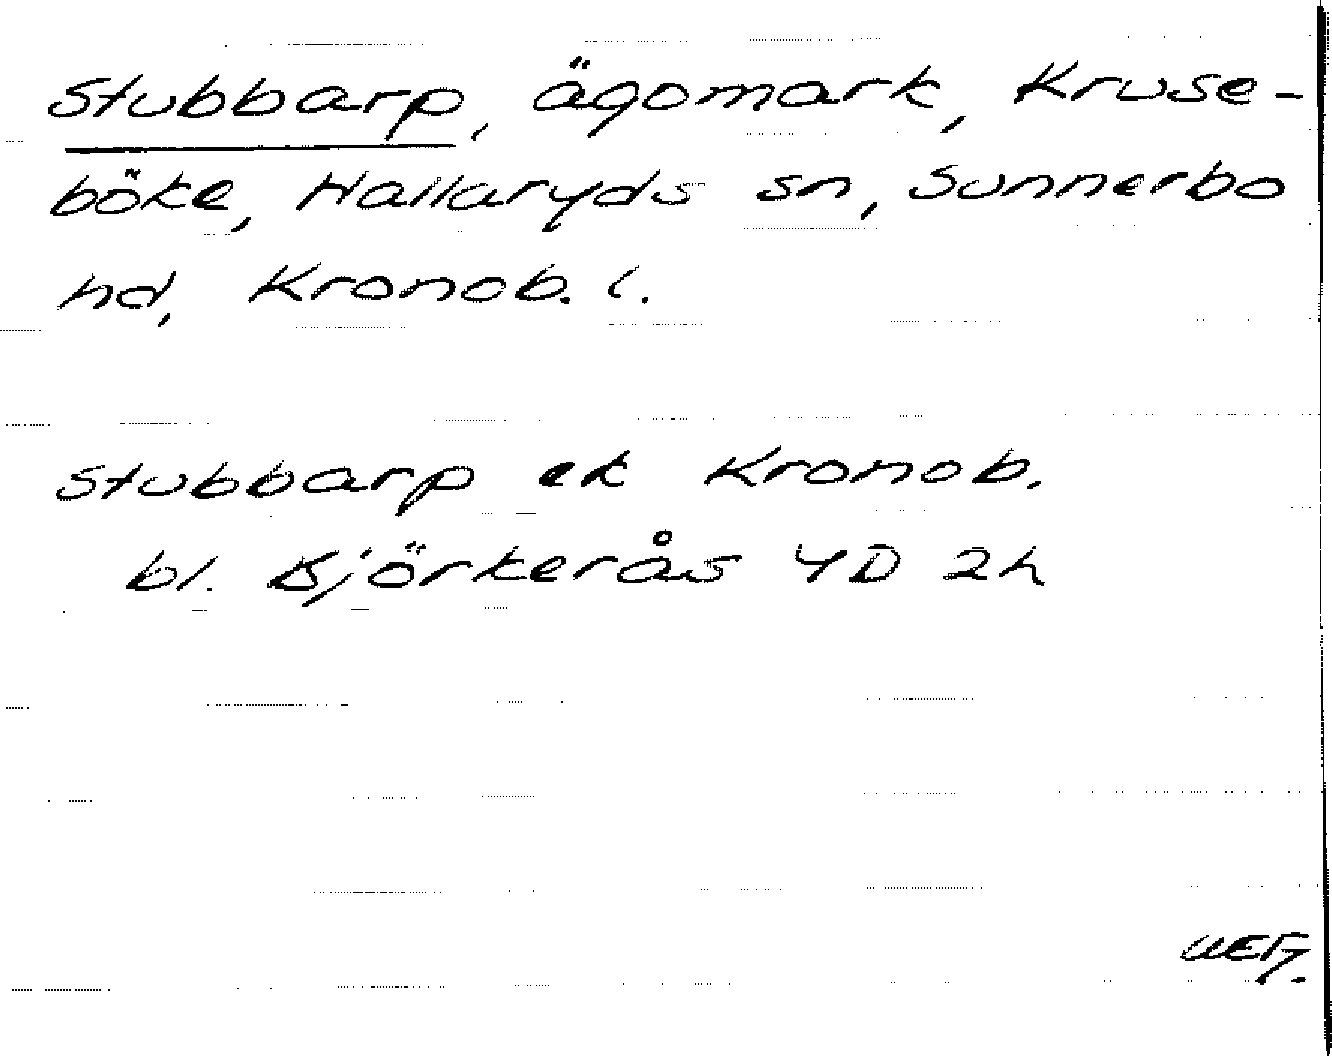 Stubbarp, ägomark, Kruse-
böke, Hallaryds sn, Sunnerbo
hd, Kronob. l.
Stubbarp ek Kronob.
bl. Björkerås 4D 2h